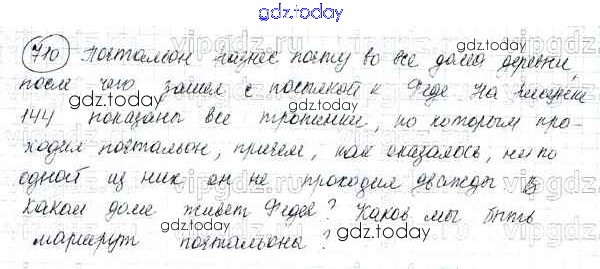 gdz.today
710 Почтальон разнес почту во все дома деревни,
после чего зашел с посылкой к Феде. На рисунке
144 показаны все тропинки, по которым про-
ходил почтальон, причем, как оказалось, ни по
одной из них он не проходил дважды В
каком доме живет Федя? Каков мы быть
маршрут почтальона?
gdz.today
gdz.today
gdz.today
gdz.today
gdz.today